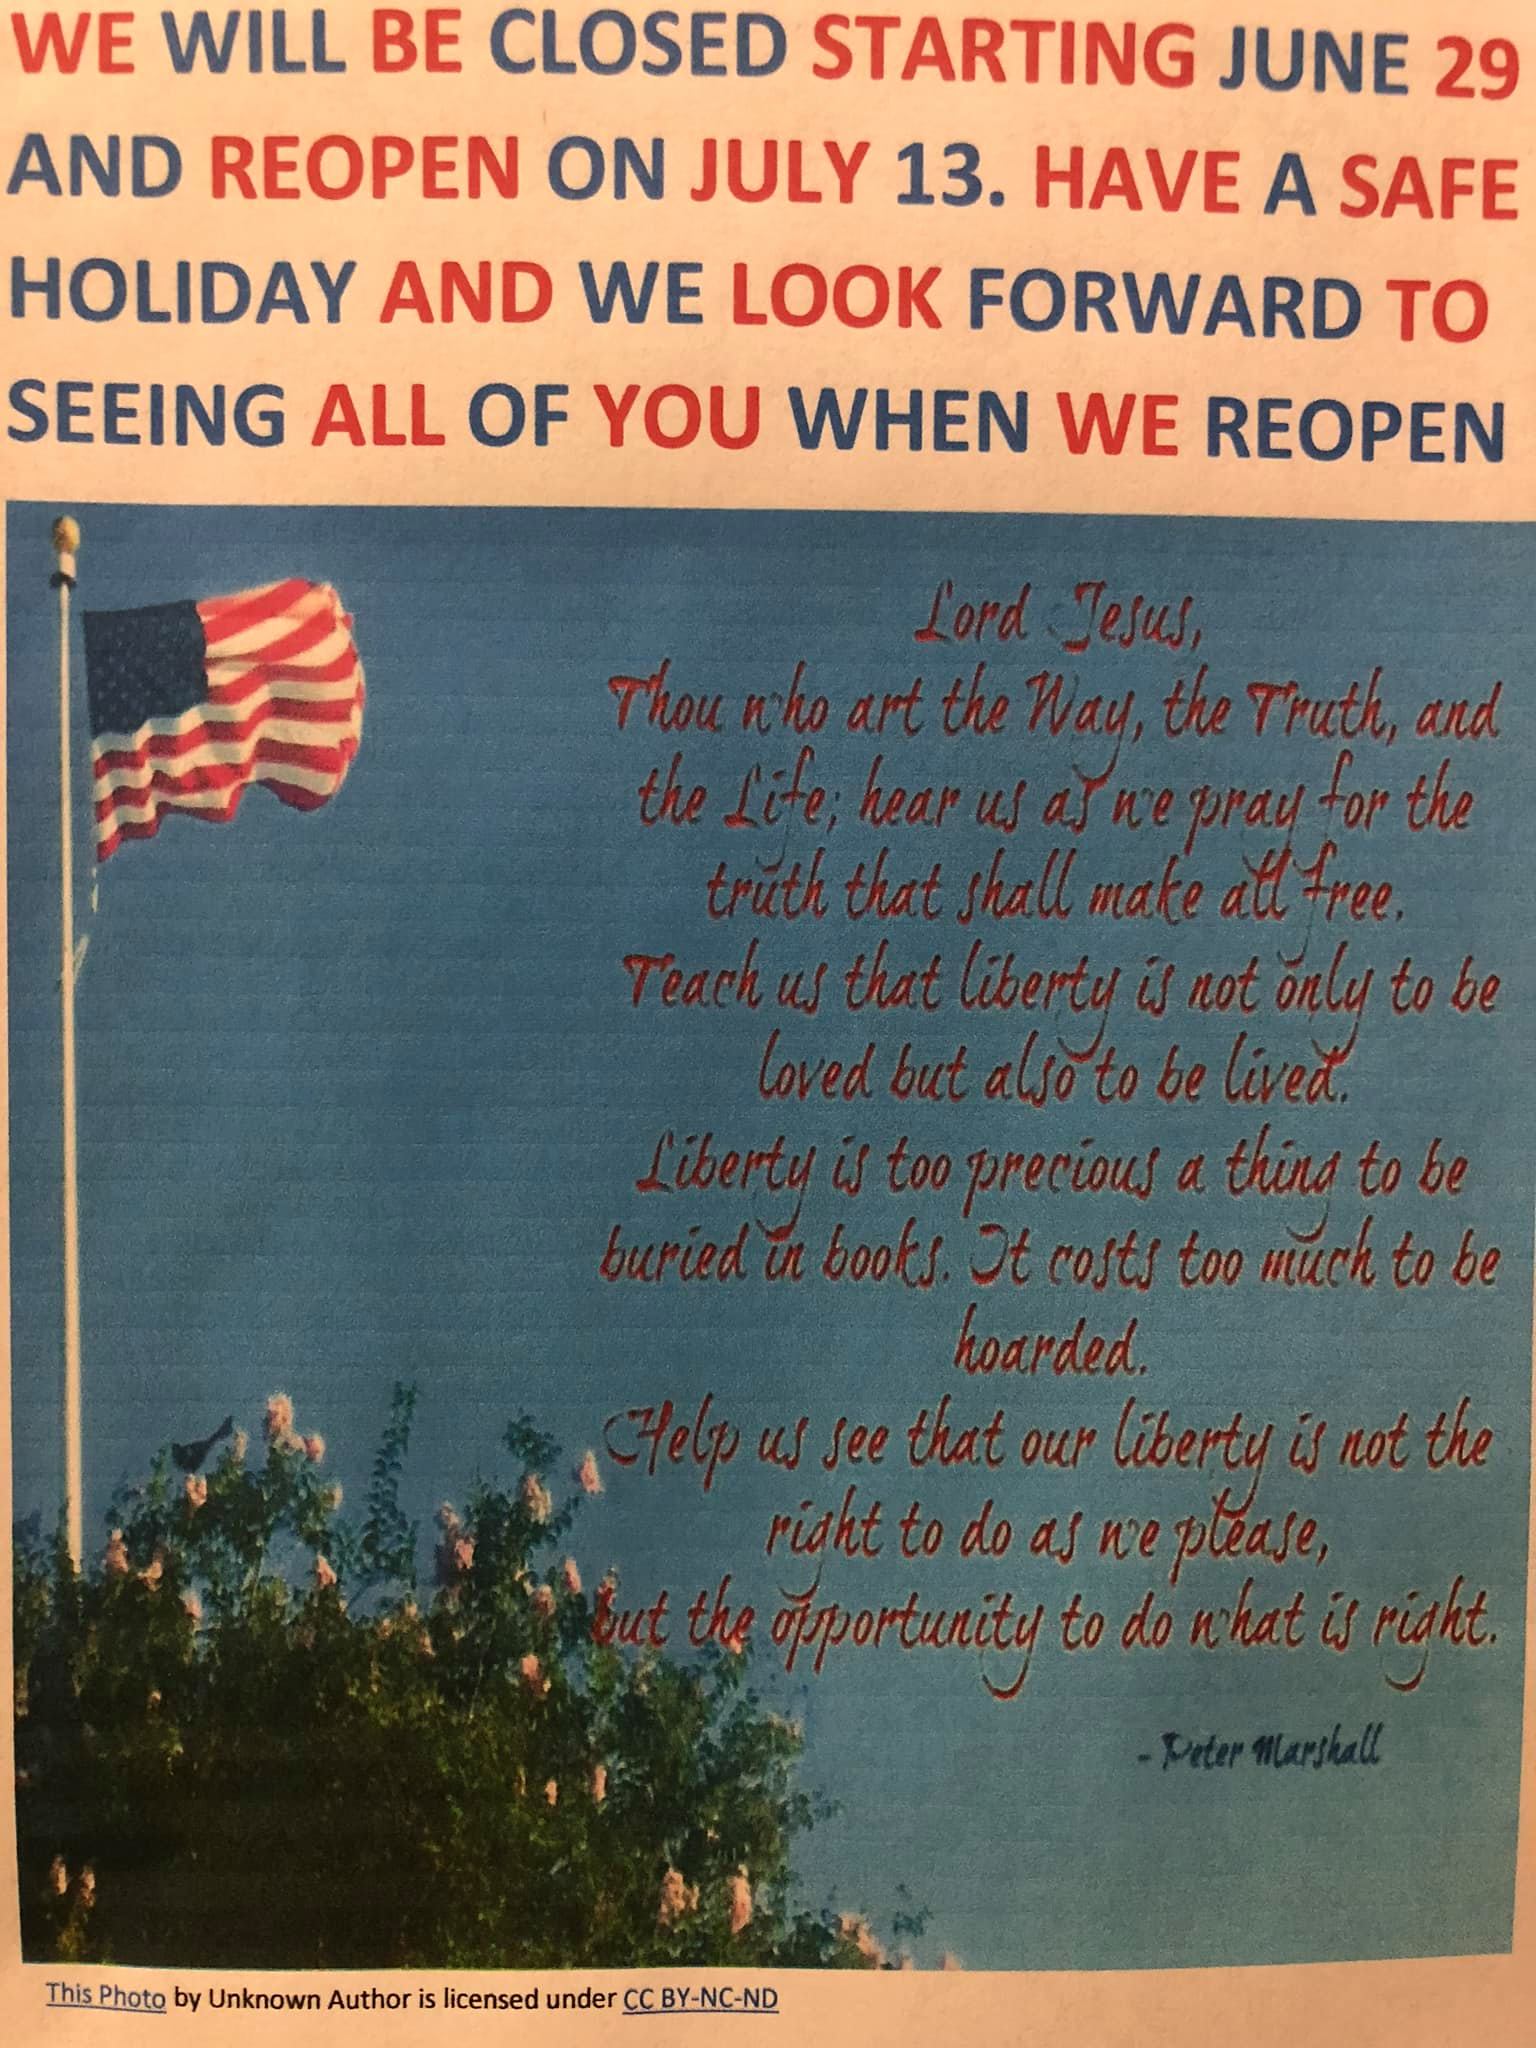 WE WILL BE CLOSED STARTING JUNE 29
AND REOPEN ON JULY 13. HAVE A SAFE
HOLIDAY AND WE LOOK FORWARD TO
SEEING ALL OF YOU WHEN WE REOPEN
Lord Jesus,
Thou who art the Way, the Truth, and
the Life; hear us as we pray for the
truth that shall make all free.
Teach us that liberty is not only to be
loved but also to be lived.
Liberty is too precious a thing to be
buried in books. It costs too much to be
hoarded.
Help us see that our liberty is not the
right to do as we please,
but the opportunity to do what is right.
- Peter Marshall
This Photo by Unknown Author is licensed under CC BY-NC-ND